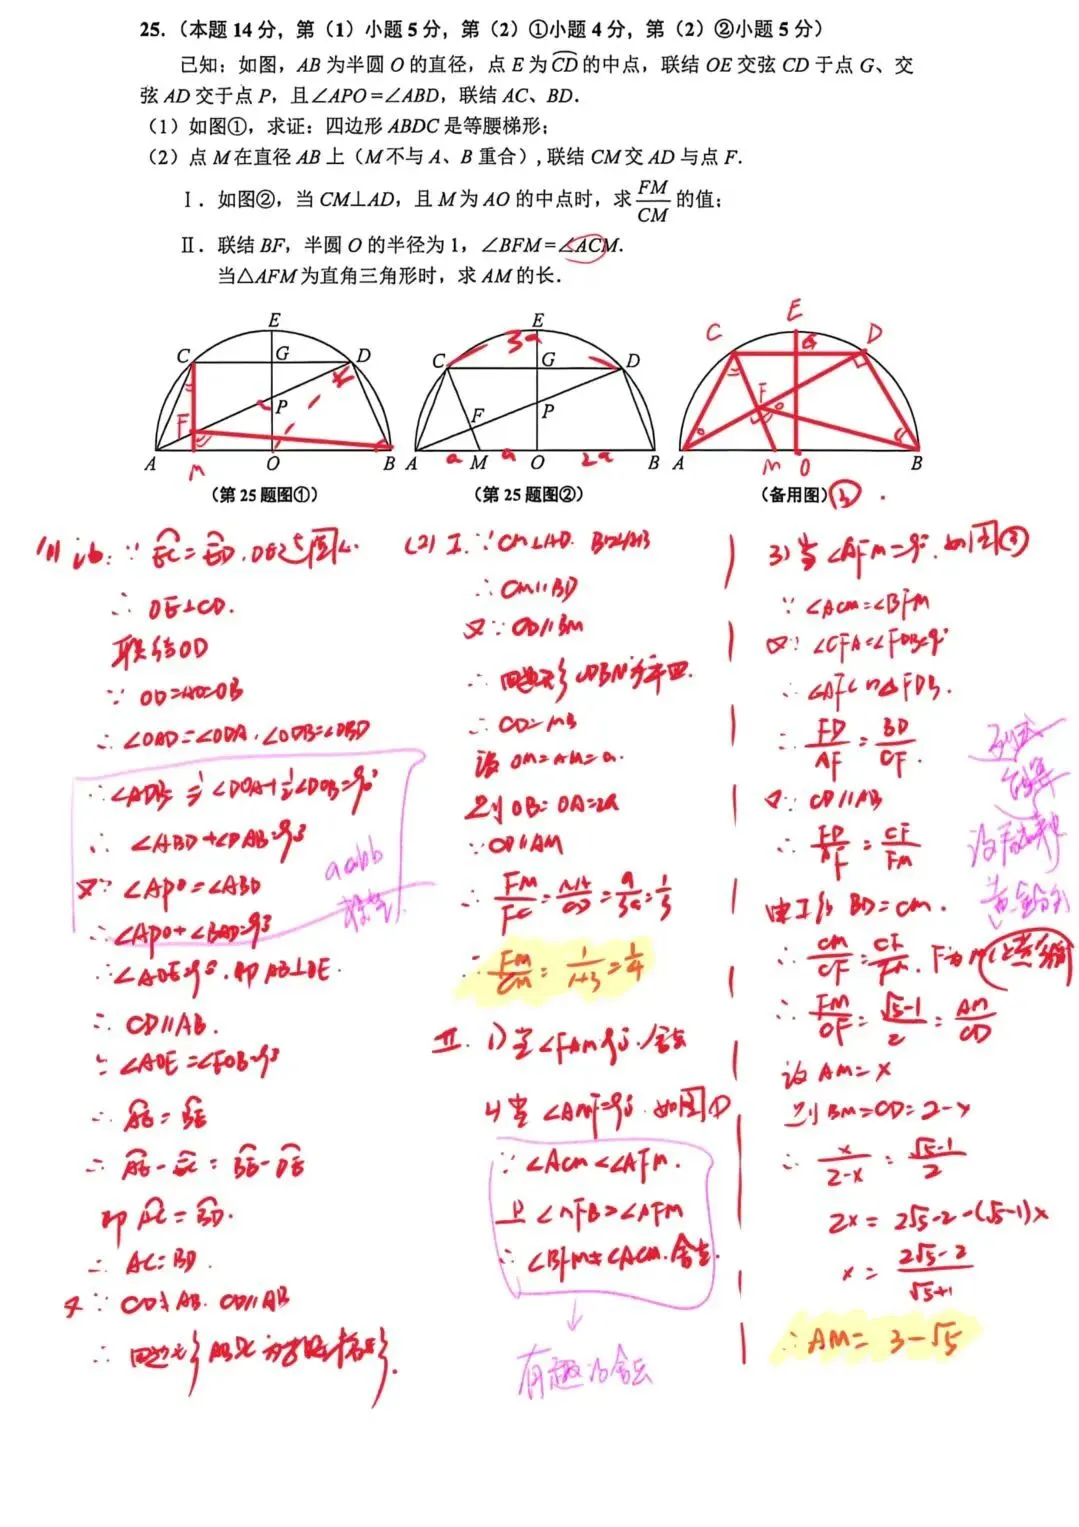 25.（本题 14 分，第（1）小题 5 分，第（2）①小题 4 分，第（2）②小题 5 分）
已知：如图，AB 为半圆 O 的直径，点 E 为CD的中点，联结 OE 交弦 CD 于点 G、交
弦 AD 交于点 P，且∠APO=∠ABD，联结 AC、BD.
（1）如图①，求证：四边形 ABDC 是等腰梯形；
（2）点 M 在直径 AB 上（M 不与 A、B 重合），联结 CM 交 AD 与点 F.
Ⅰ. 如图②，当 CM⊥AD，且 M 为 AO 的中点时，求 FM/CM 的值；
Ⅱ. 联结 BF，半圆 O 的半径为 1，∠BFM=∠ACM.
当△AFM 为直角三角形时，求 AM 的长.
E
C G D
F P
A M O B
（第 25 题图①）
E
3a
C G D
F P
A a M a O 2a B
（第 25 题图②）
E
C G D
F
A M O B
（备用图）③
∴ OE⊥CD.
联结OD
∵ OD=AO=OB
∴ ∠OAD=∠ODA，∠ODB=∠OBD
∴ ∠ADB=½∠DOA+½∠DOB=90°
∴ ∠ABD+∠DAB=90°
又∵ ∠APO=∠ABD
∴ ∠APO+∠BAD=90°
∴ ∠AOE=90°，即 AB⊥OE.
∴ CD∥AB.
∵ ∠AOE=∠EOB=90°
∴ AE=BE
∴ AE-EC=BE-DE
即 AC=BD.
∴ AC=BD.
又∵ CD≠AB，CD∥AB
(2) Ⅰ.∵ CM⊥AD
∴ CM∥BD
又∵ CD∥BM
∴ CD=MB
设 OM=AM=a.
则 OB=OA=2a
∵ CD∥AM
∴ FM/FC=MA/CD=a/3a=1/3
∴ FM/CM=1/(1+3)=1/4
Ⅱ. 1) 当∠FAM=90°，舍去
2) 当∠AMF=90°，如图①
∵ ∠ACM<∠AFM.
且∠MFB>∠AFM
∴ ∠BFM≠∠ACM. 舍去.
有趣的舍去
3) 当∠AFM=90°，如图③
∵ ∠ACM=∠BFM
又∵ ∠CFA=∠FDB=90°
∴ △AFC∽△FDB.
∴ FD/AF=BD/CF.
又∵ CD∥AB
∴ FD/AF=CF/FM
由Ⅰ得 BD=CM.
∴ CM/CF=CF/FM.
∴ FM/CF=(√5-1)/2=AM/CD
设 AM=x
则 BM=CD=2-x
∴ x/(2-x)=(√5-1)/2
2x=2√5-2-(√5-1)x
x=(2√5-2)/(√5+1)
∴ AM=3-√5